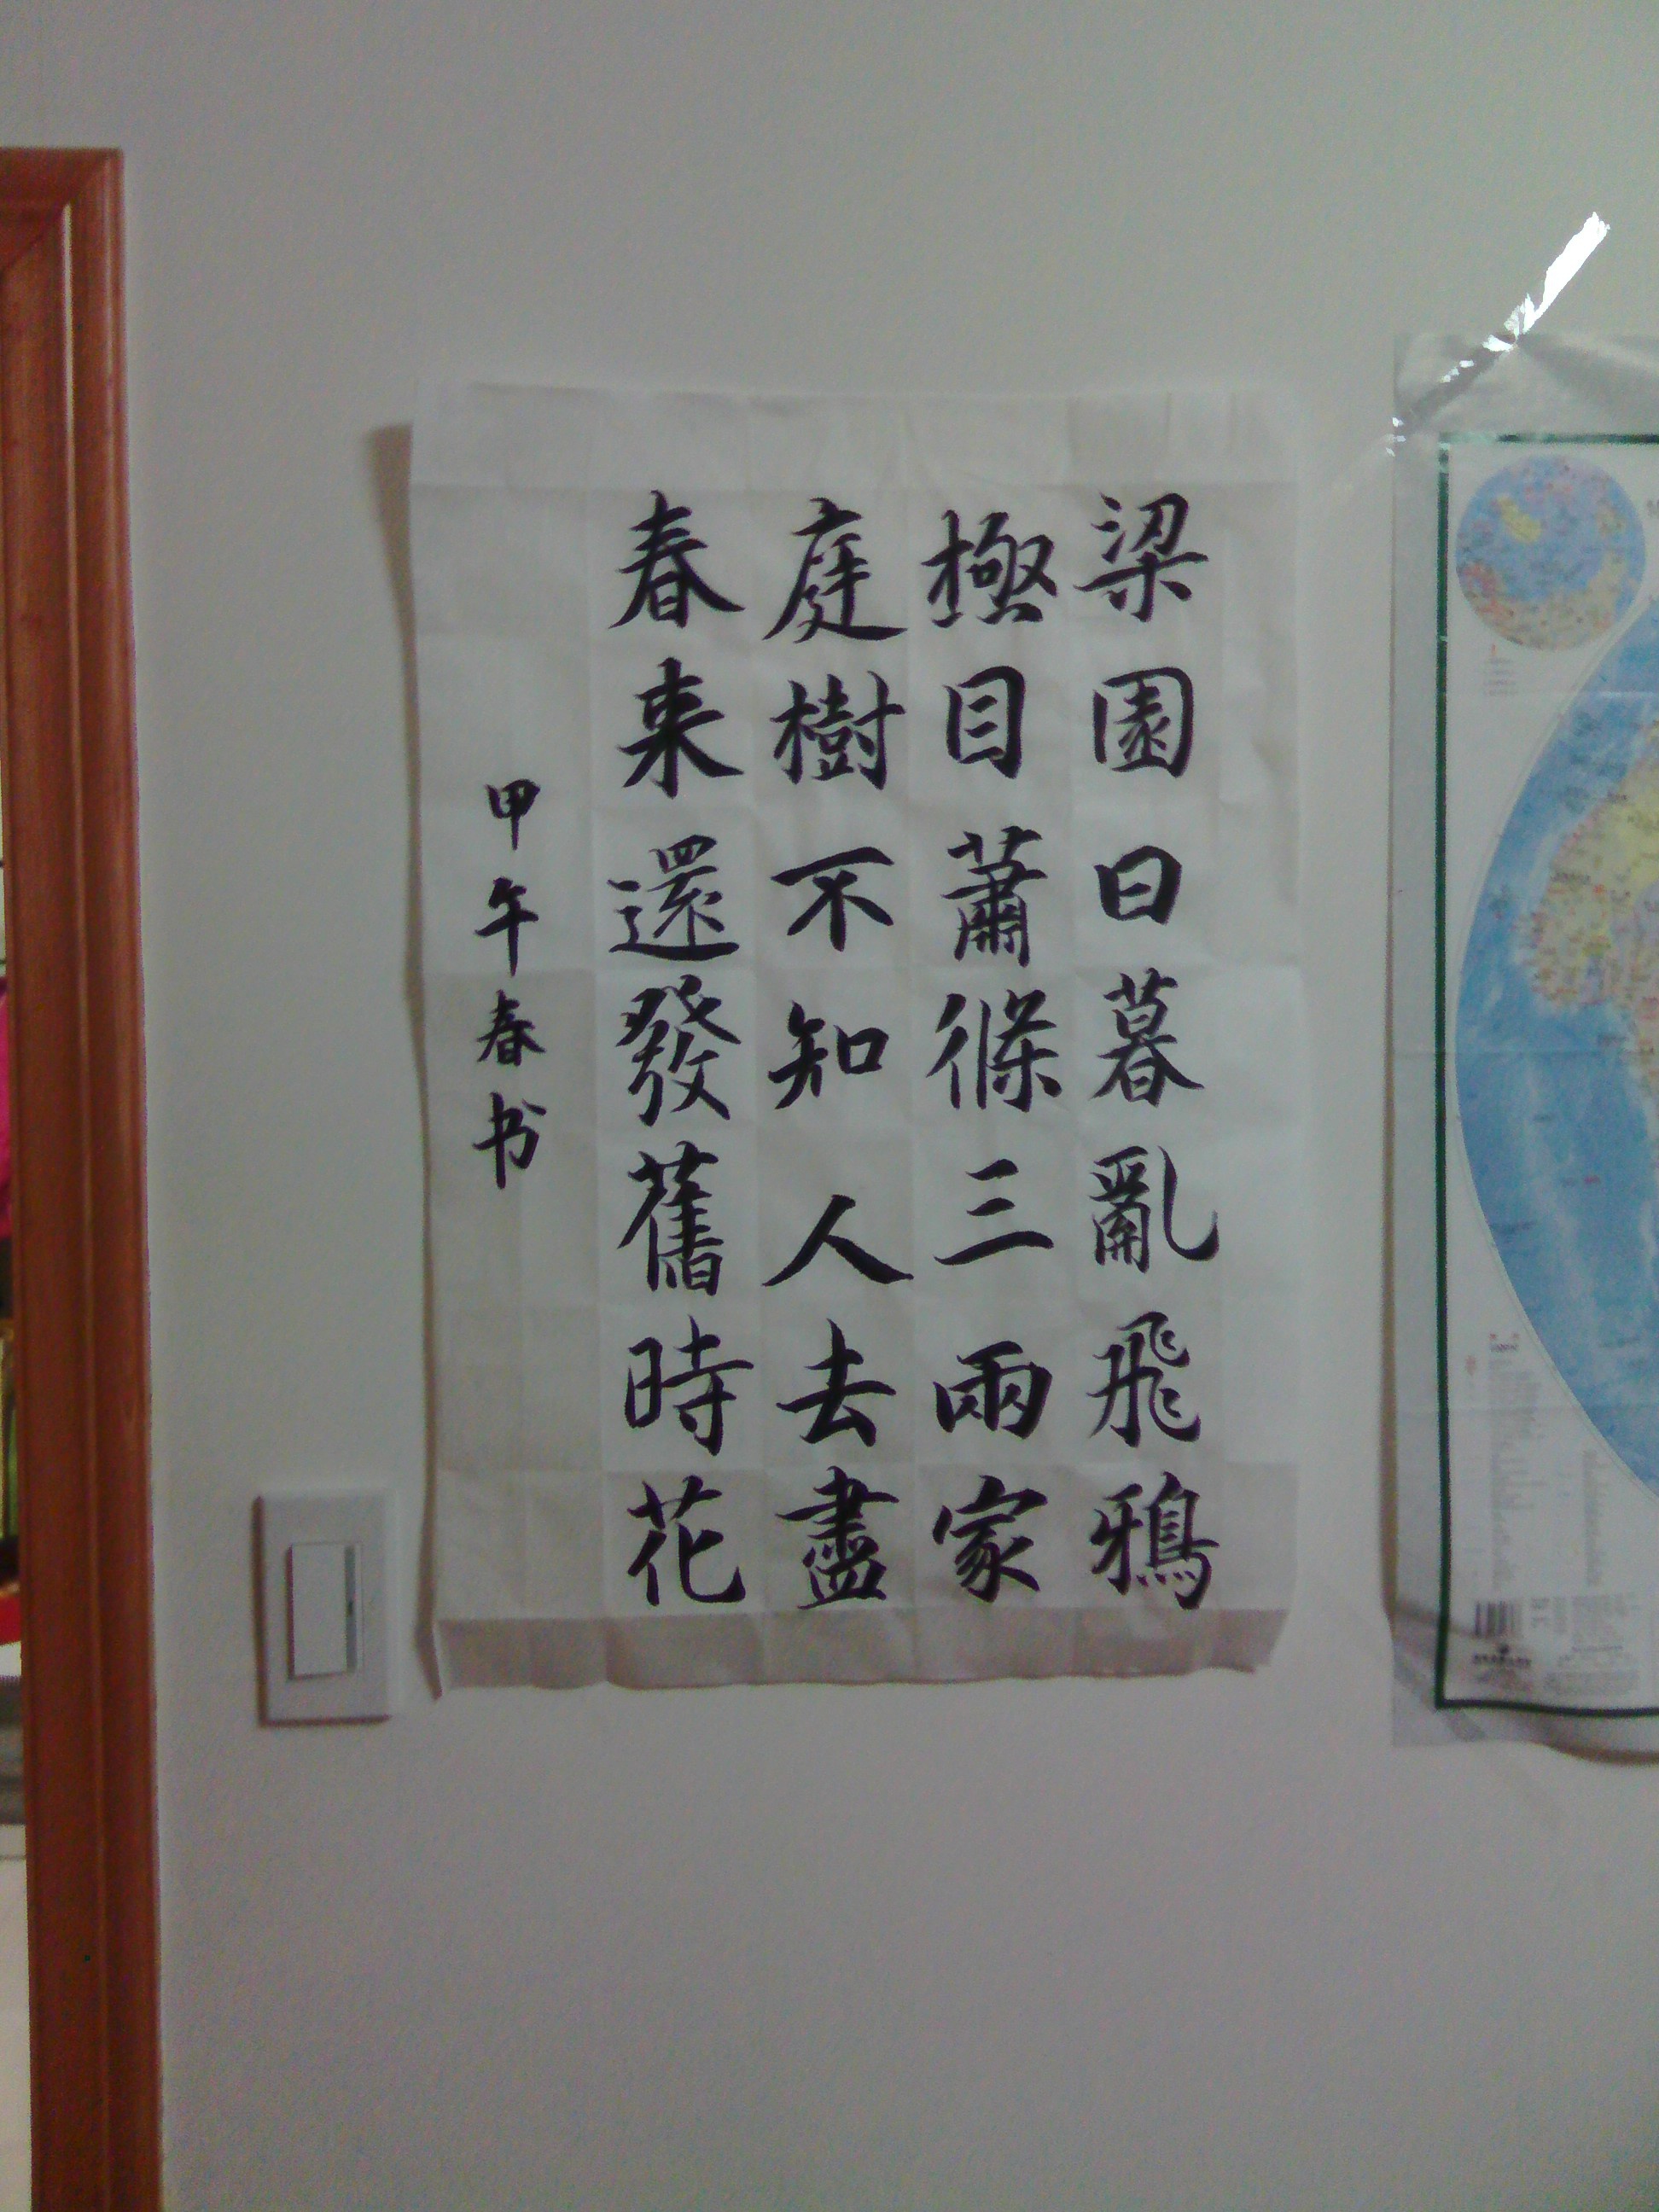 梁園日暮亂飛鴉
極目蕭條三兩家
庭樹不知人去盡
春来還發舊時花
甲午春书